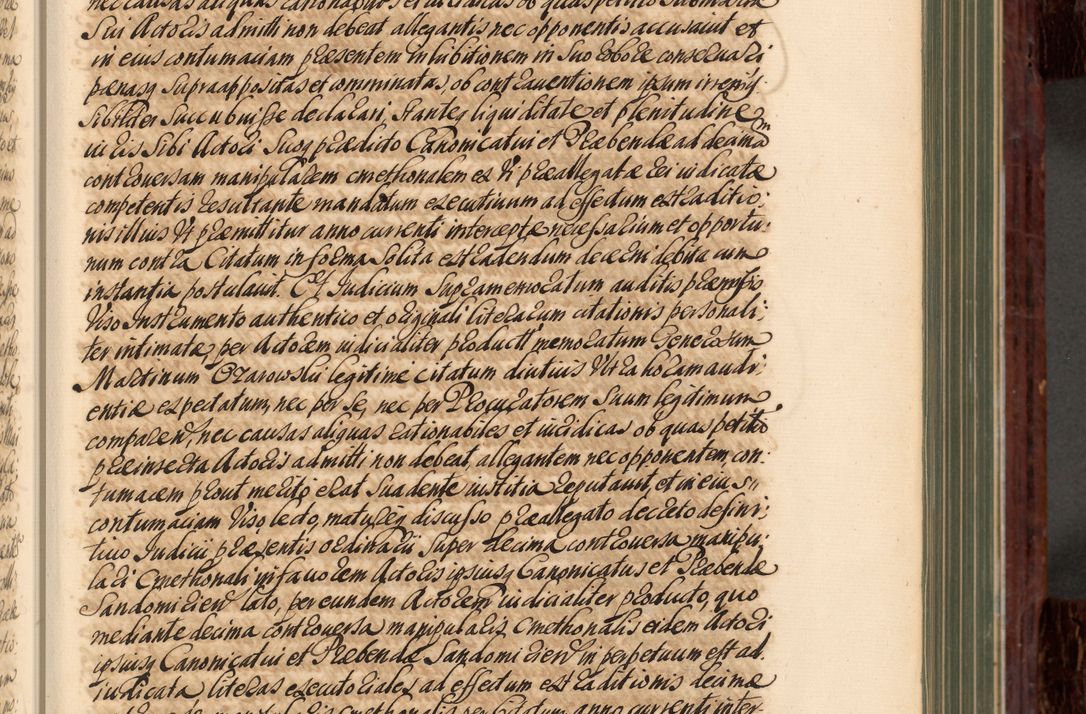 nec causas aliquas rationabiles et iuridicas ob quas petitio submissa
Sui Actoris admitti non debeat allegantis, nec opponentis accusavit et
in eius contumaciam præsentem inhibitionem in suo robore conservari
pœnasq supra appositas et comminatas, ob contraventionem ipsum irremis-
sibiliter succubuisse declarari, stanteq liquiditate et plenitudine
iuris sibi Actori suoq prædicto Canonicatui et Præbendæ ad decimam
controversam manipularem cmethonalem ex vi præallegatæ rei iudicatæ
competentis resultante mandatum executivum ad effectum extraditio:
nis illius ut præmittitur anno currenti interceptæ necessarium et opportu:
num contra Citatum in forma solita extradendum decerni debita cum
instantia postulavit. Et Judicium supramemoratum auditis præmissis
viso Instrumento authentico et originali literarum citationis personali:
ter intimatæ, per Actorem iudicialiter producti memoratum Generosum
Martinum Ozarowski legitime citatum diutius ultra horam audi:
entiæ expectatum, nec per se, nec per Procuratorem suum legitimum
comparen, nec causas aliquas rationabiles et iuridicas ob quas petitio
præinserta Actoris admitti non debeat, allegantem nec opponentem, con:
tumacem prout merito erat suadente iustitia reputavit et in eius
contumaciam viso lecto, matureq discusso præallegato decreto defini:
tivo Judicii præsentis ordinarii super decima controversa manipu:
lari Cmethonali in favorem Actoris ipsiusq Canonicatus et Præbendæ
Sandomirien lato, per eundem Actorem iudicialiter producto, quo
mediante decima controversa manipularis Cmethonalis eidem Actori
ipsiusq Canonicatui et Præbendæ Sandomirien in perpetuum est ad
iudicata literas executoriales ad effectum extraditionis decimæ
manipularis cmethonalis per Citatum anno currenti inter-